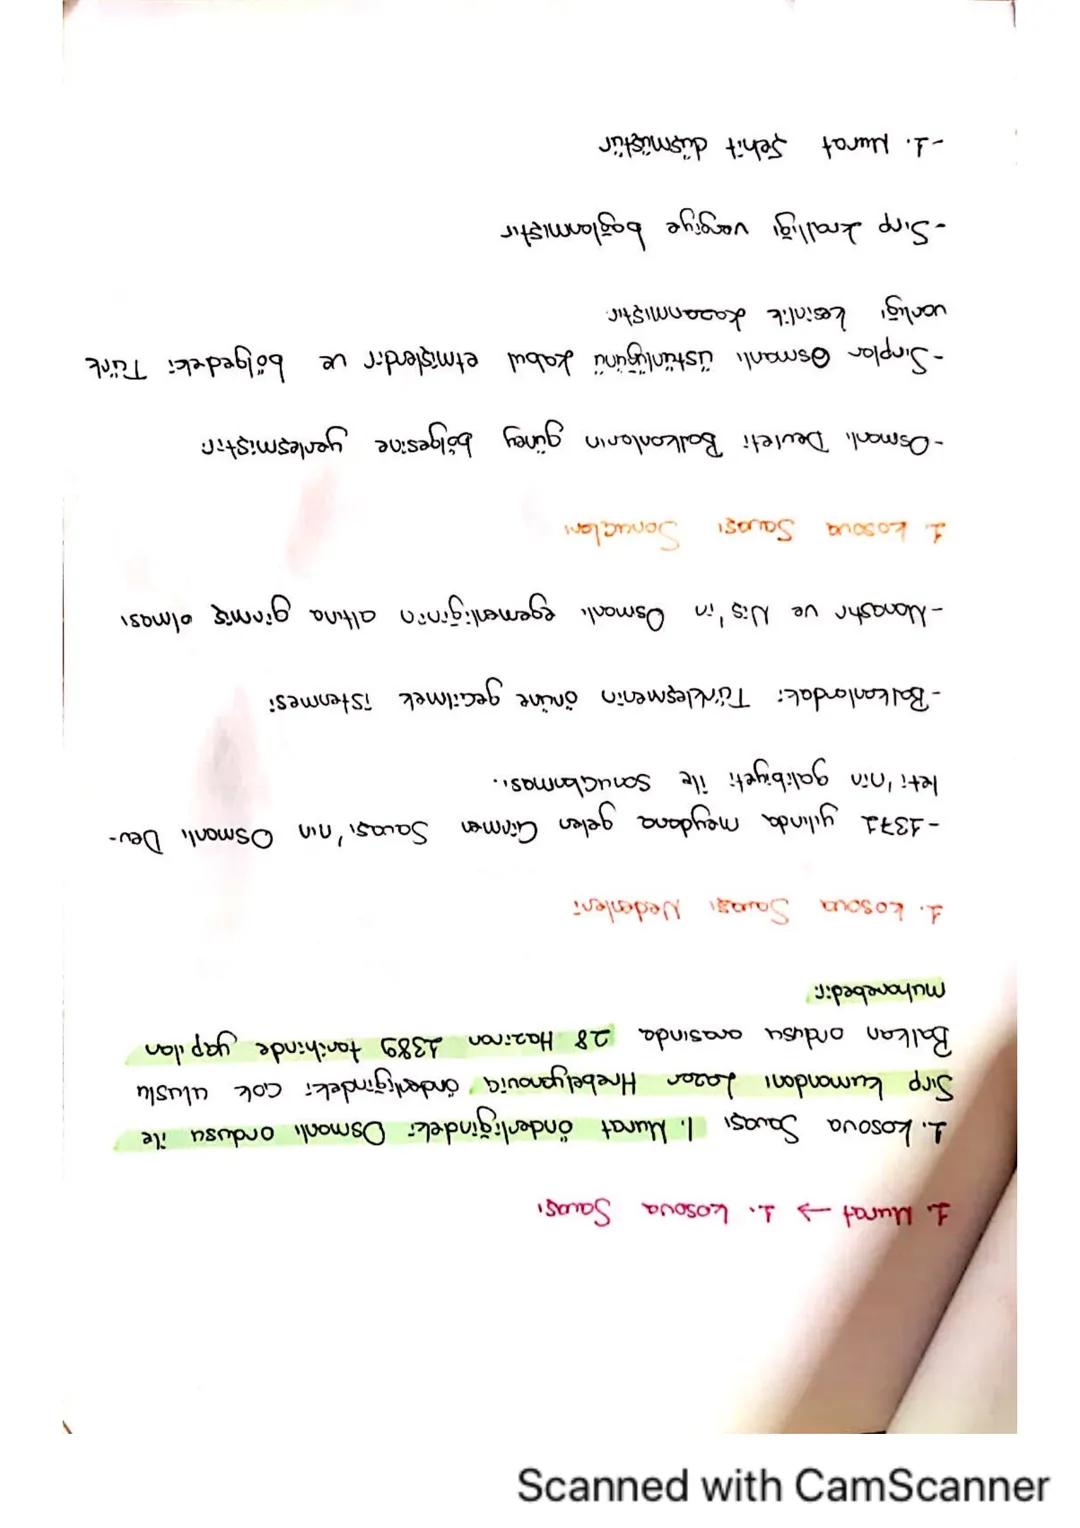 1. Murat → 1. Kosova Savaşı
1. Kosova Savaşı 1. Murat önderliğindeki Osmanlı ordusu ile
Sırp kumandanı Lazar Hrebelyanoviç önderliğindeki çok uluslu
Balkan ordusu arasında 28 Haziran 1389 tarihinde yapılan
muharebedir.
1. Kosova Savaşı Nedenleri
-1371 yılında meydana gelen Çirmen Savaşı'nın Osmanlı Dev-
leti'nin galibiyeti ile sonuçlanması.
-Balkanlardaki Türkleşmenin önüne geçilmek istenmesi
-Manastır ve Nis'in Osmanlı egemenliğinin altına girmiş olması
1. Kosova Savaşı Sonuçları
-Osmanlı Devleti Balkanların güney bölgesine yerleşmiştir.
-Sırplar Osmanlı üstünlüğünü kabul etmişlerdir ve bölgedeki Türk
varlığı kesinlik kazanmıştır.
-Sırp krallığı vergiye bağlanmıştır
-1. Murat şehit düşmüştür
Scanned with CamScanner